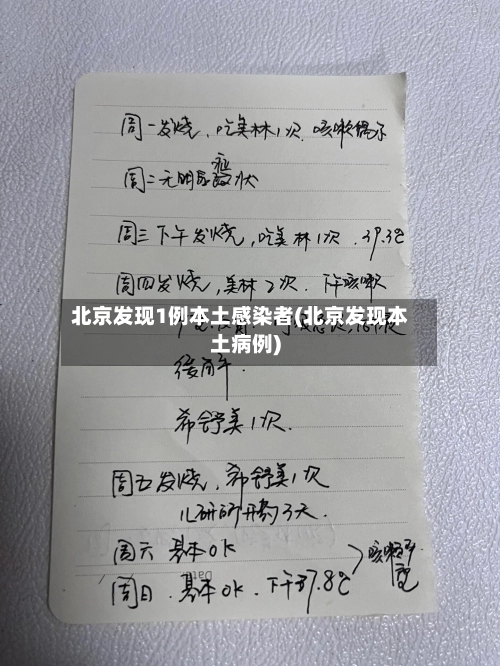 周一发烧，吃美林1次，咳嗽偶尔
周二无明显症状
周三下午发烧，吃美林1次，39.3℃
周四发烧，美林2次，下午咳嗽
北京发现1例本土感染者(北京发现本
土病例)
缓解．
希舒美1次．
周五发烧，希舒美1次
儿研所开药3天．
周六 基本OK
咳嗽
周日．基本OK．下午37.8℃